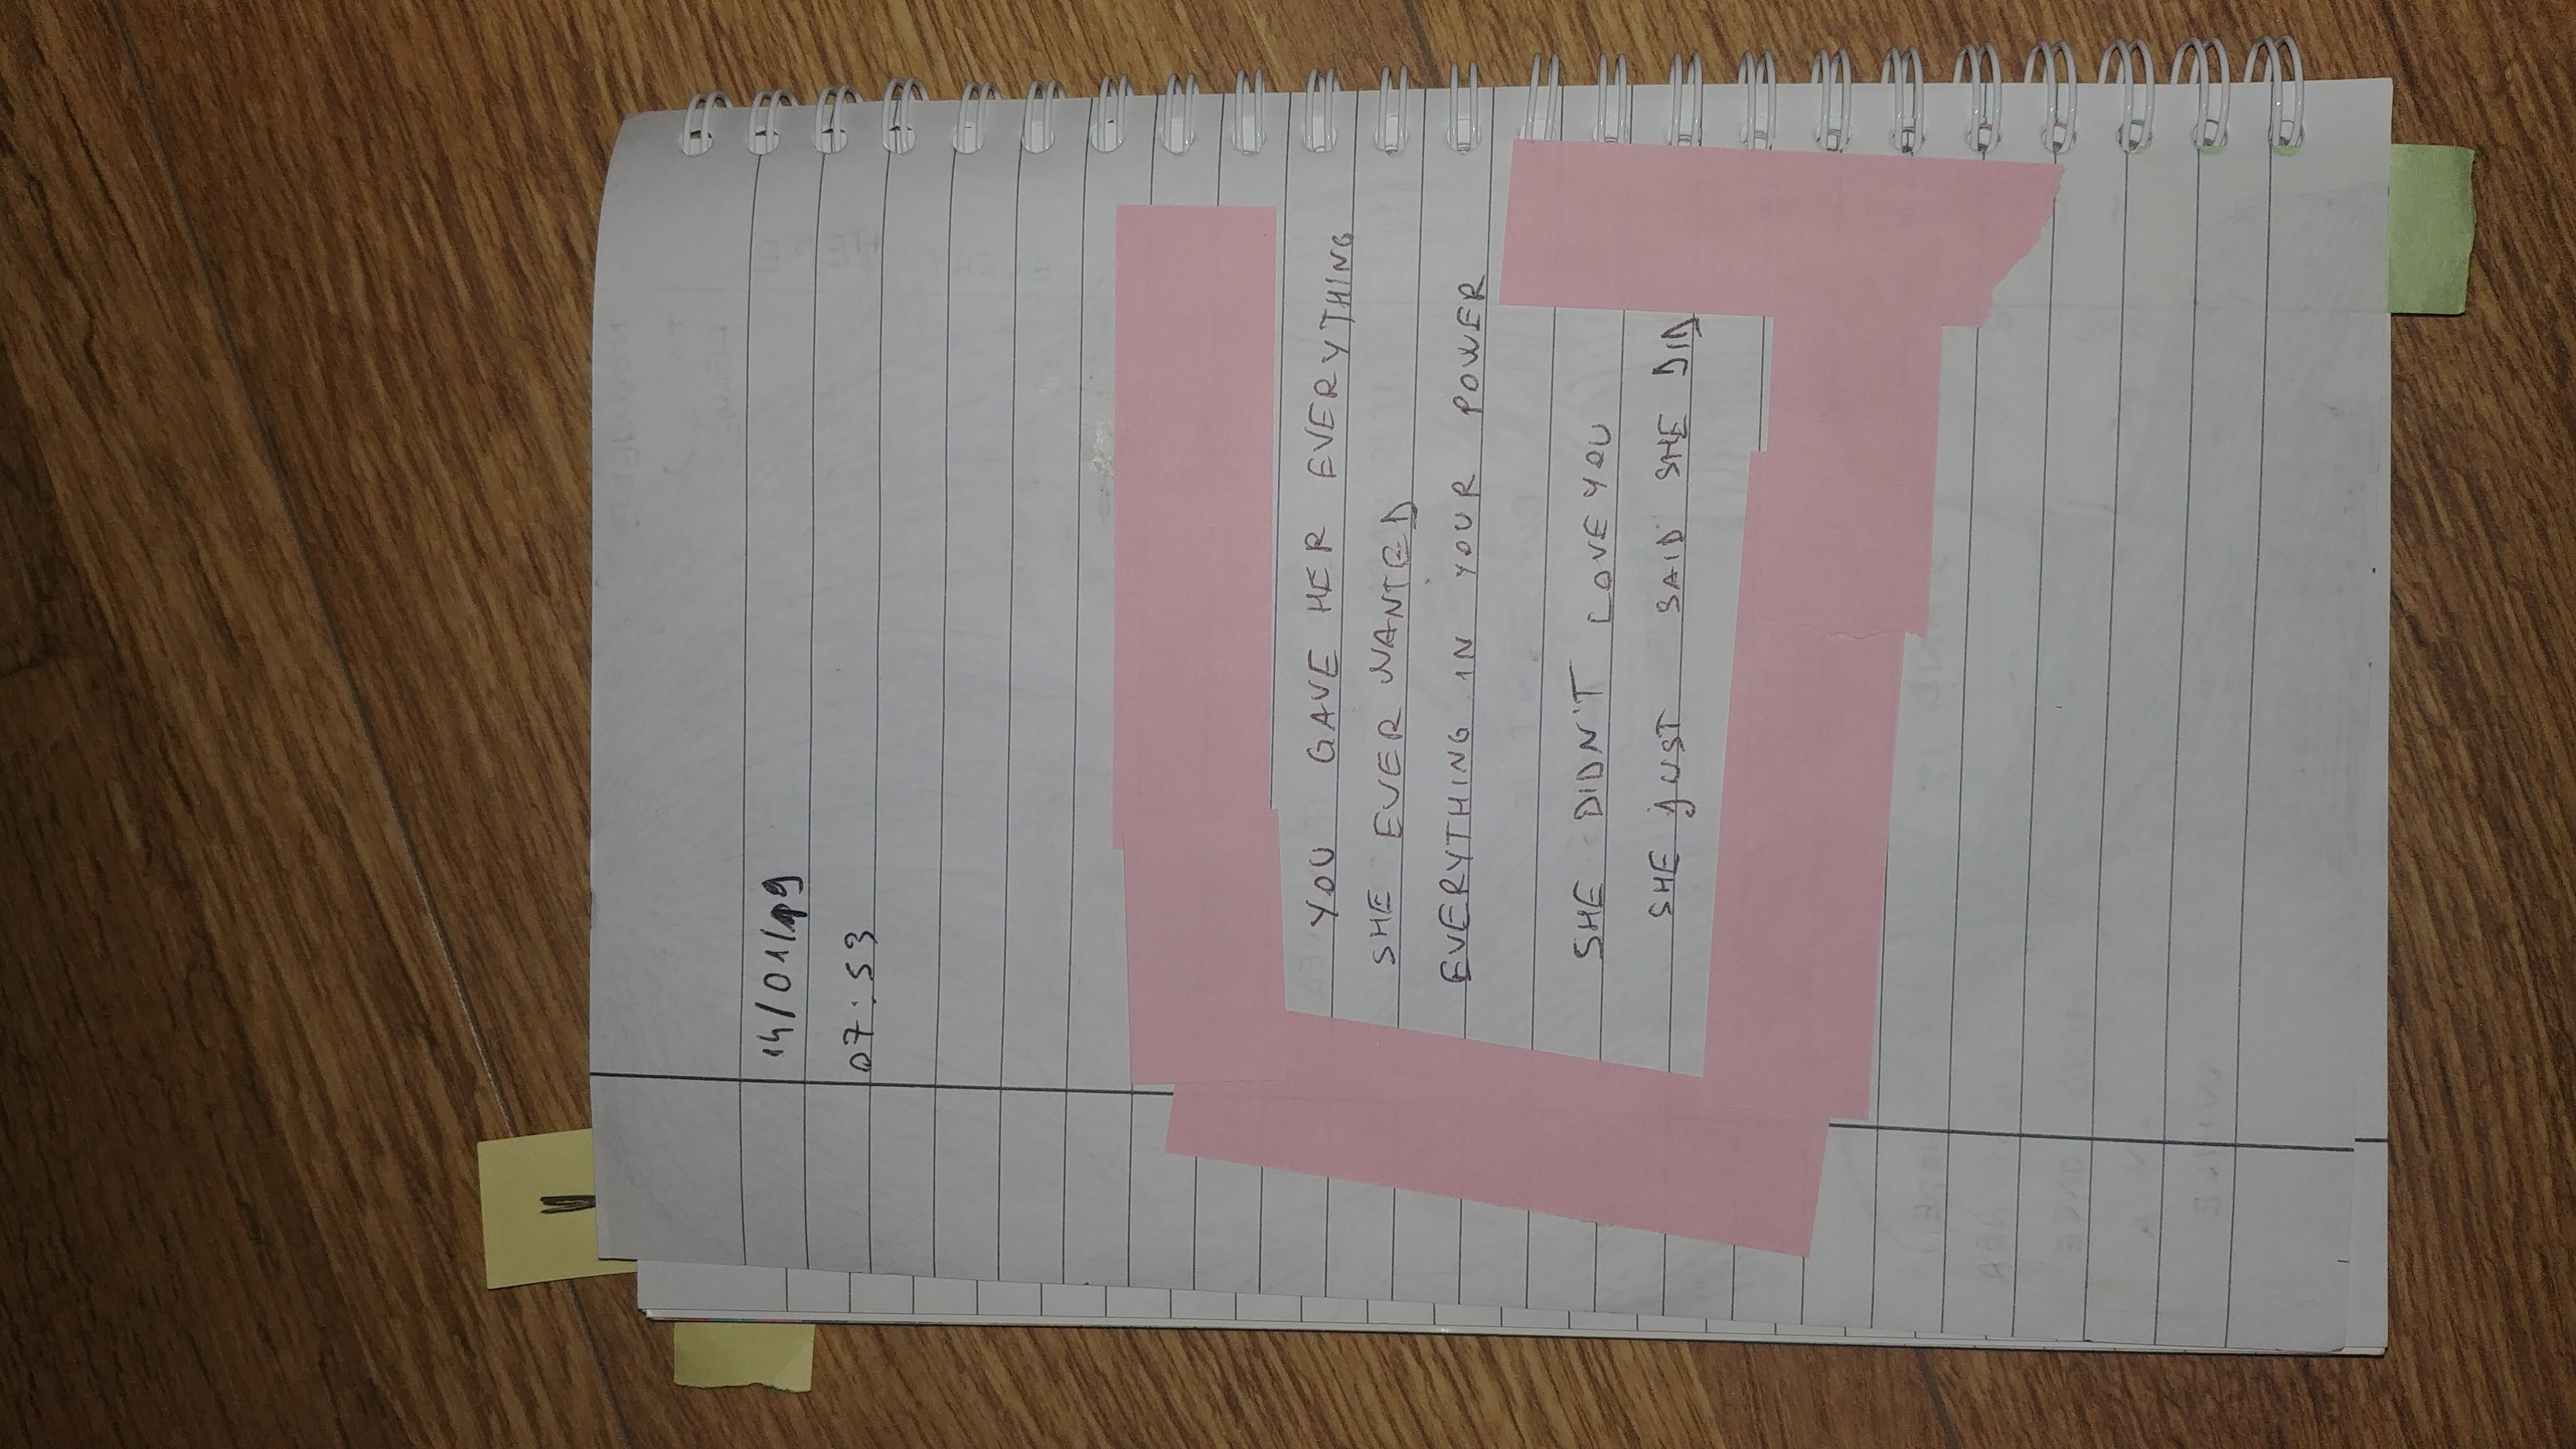 14/01/19
07:53
YOU GAVE HER EVERYTHING
SHE EVER WANTED
EVERYTHING IN YOUR POWER
SHE DIDN'T LOVE YOU
SHE JUST SAID SHE DID